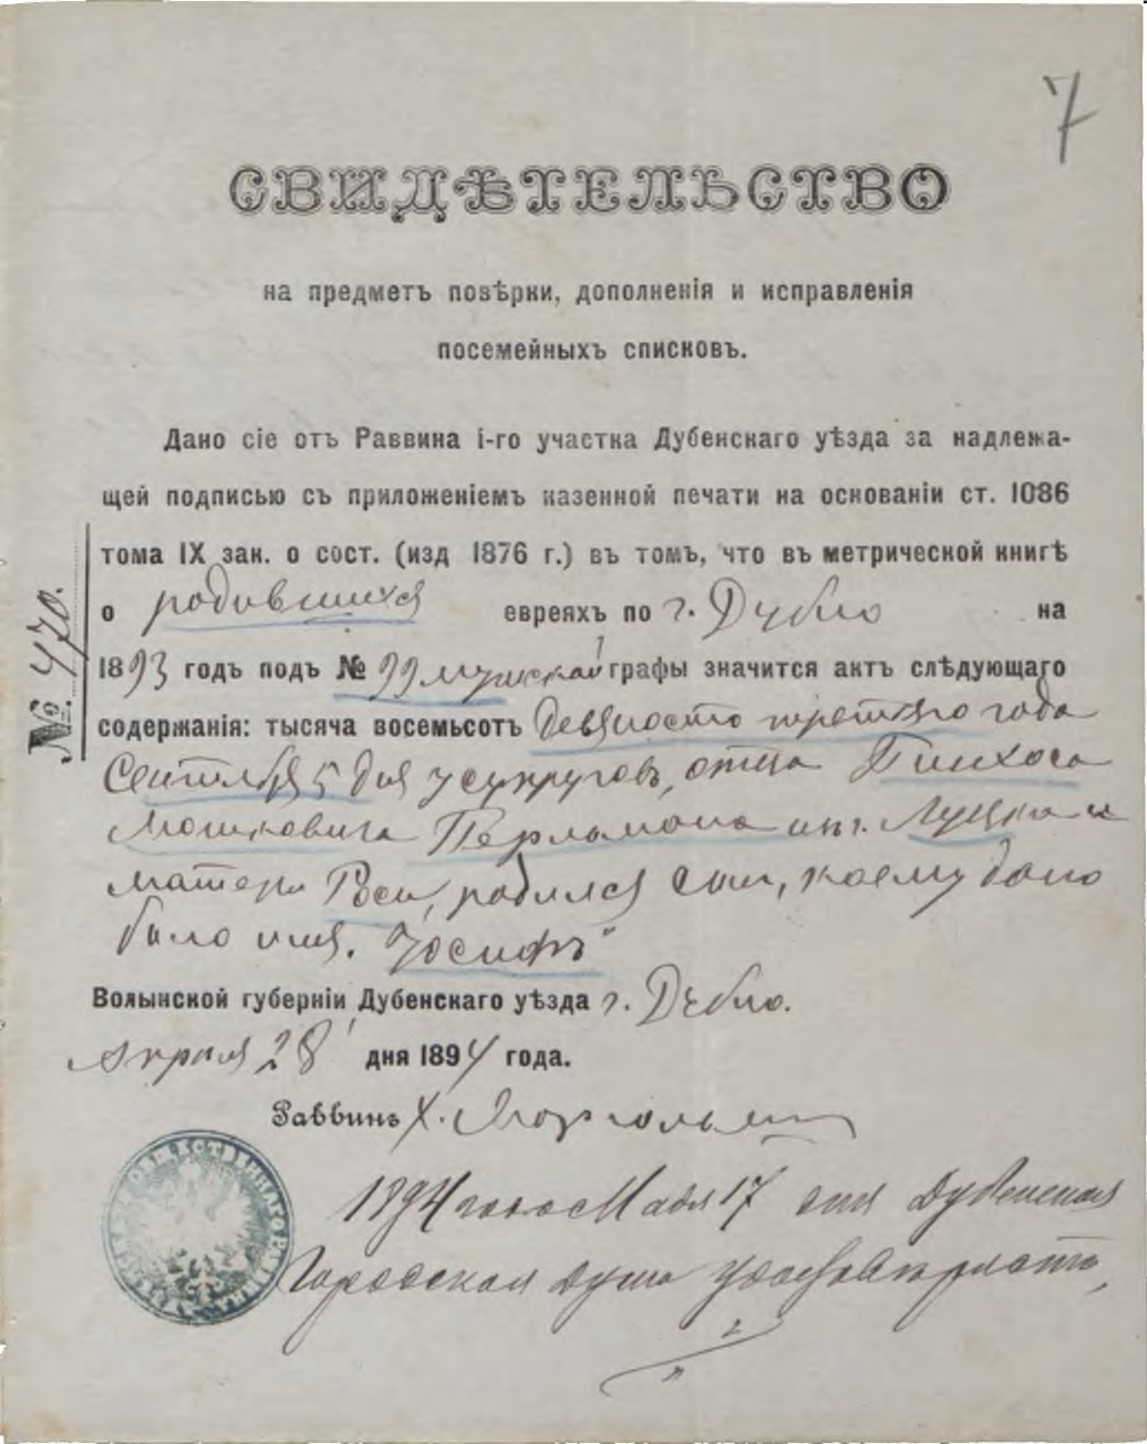 7
СВИДѢТЕЛЬСТВО
на предметъ повѣрки, дополненія и исправленія
посемейныхъ списковъ.
Дано сіе отъ Раввина і-го участка Дубенскаго уѣзда за надлежа-
щей подписью съ приложеніемъ казенной печати на основаніи ст. 1086
тома IX зак. о сост. (изд 1876 г.) въ томъ, что въ метрической книгѣ
о родившихся евреяхъ по г. Дубно на
1893 годъ подъ № 99 мужской графы значится актъ слѣдующаго
содержанія: тысяча восемьсотъ девяносто третьяго года
Сентября 5 дня у супруговъ, отца Пинхоса
Мошковича Перльмана из г. Луцка и
матери Рси, родился сын, коему дано
было имя. "Іосифъ"
Волынской губерніи Дубенскаго уѣзда г. Дубно.
Апреля 28 дня 1894 года.
Раввинъ Х.
1894 года Мая 17 дня Дубенская
Городская Дума
№ 470.